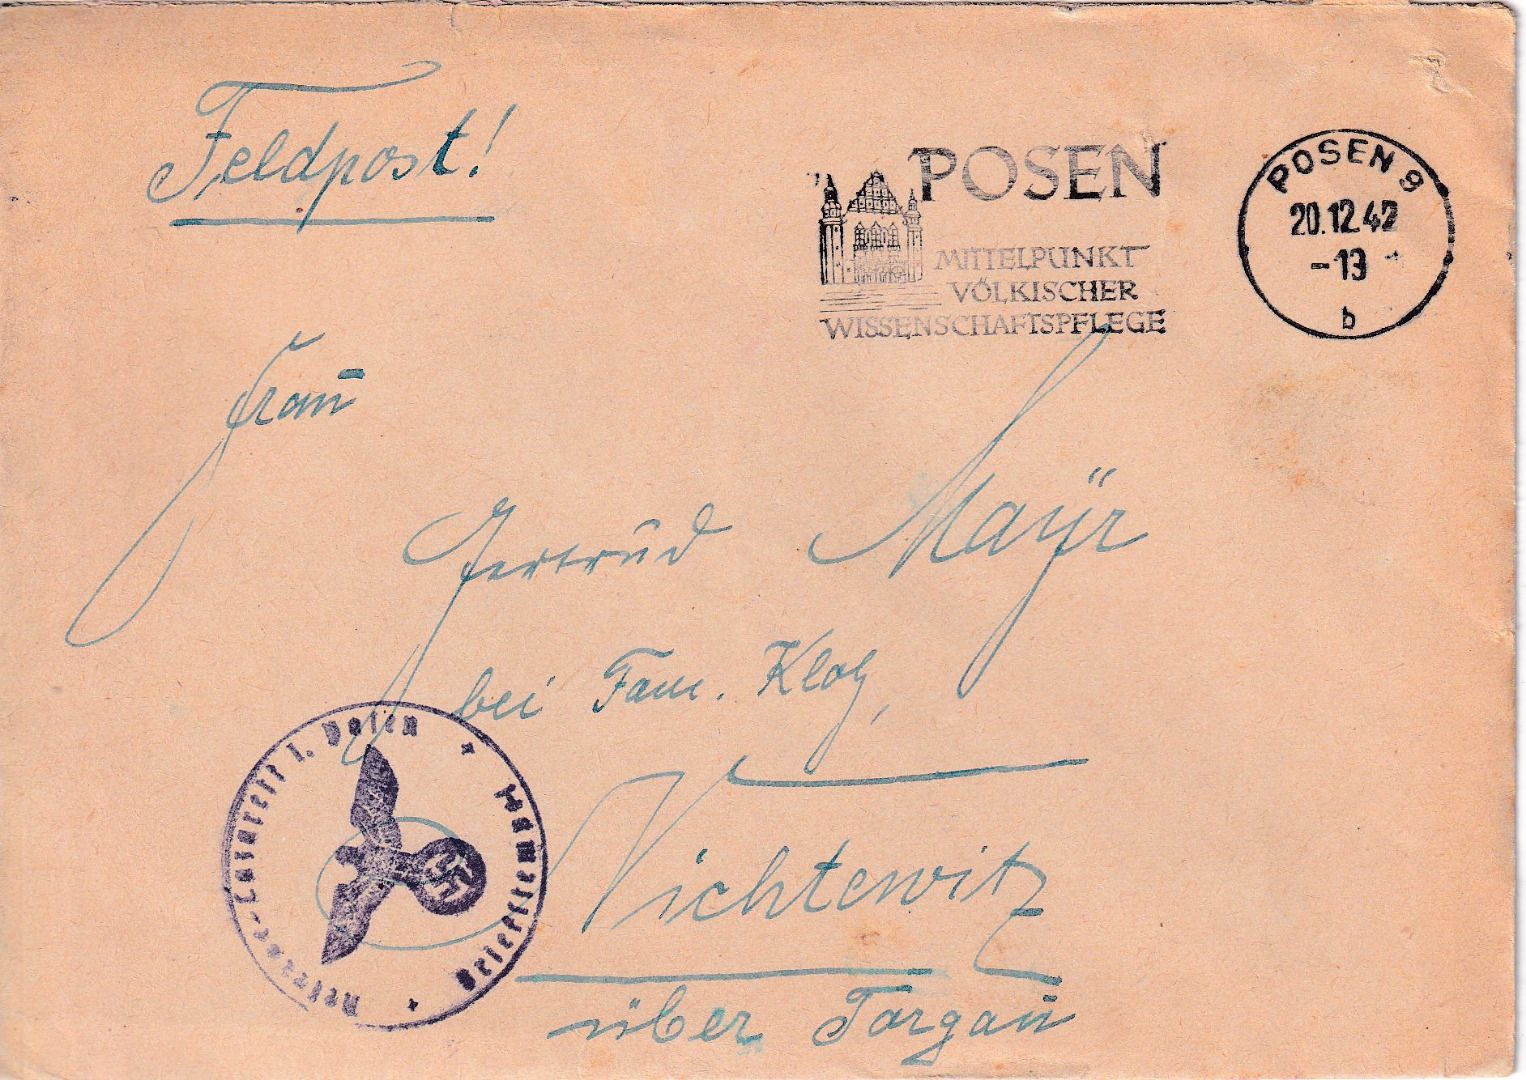 Feldpost!
POSEN
MITTELPUNKT
VÖLKISCHER
WISSENSCHAFTSPFLEGE
POSEN 9
20.12.42
-13
b
Frau
Gertrud Mayr
bei Fam. Klotz,
Vichtewitz
über Torgau
Reserve-Lazarett I. Posen
Briefstempel